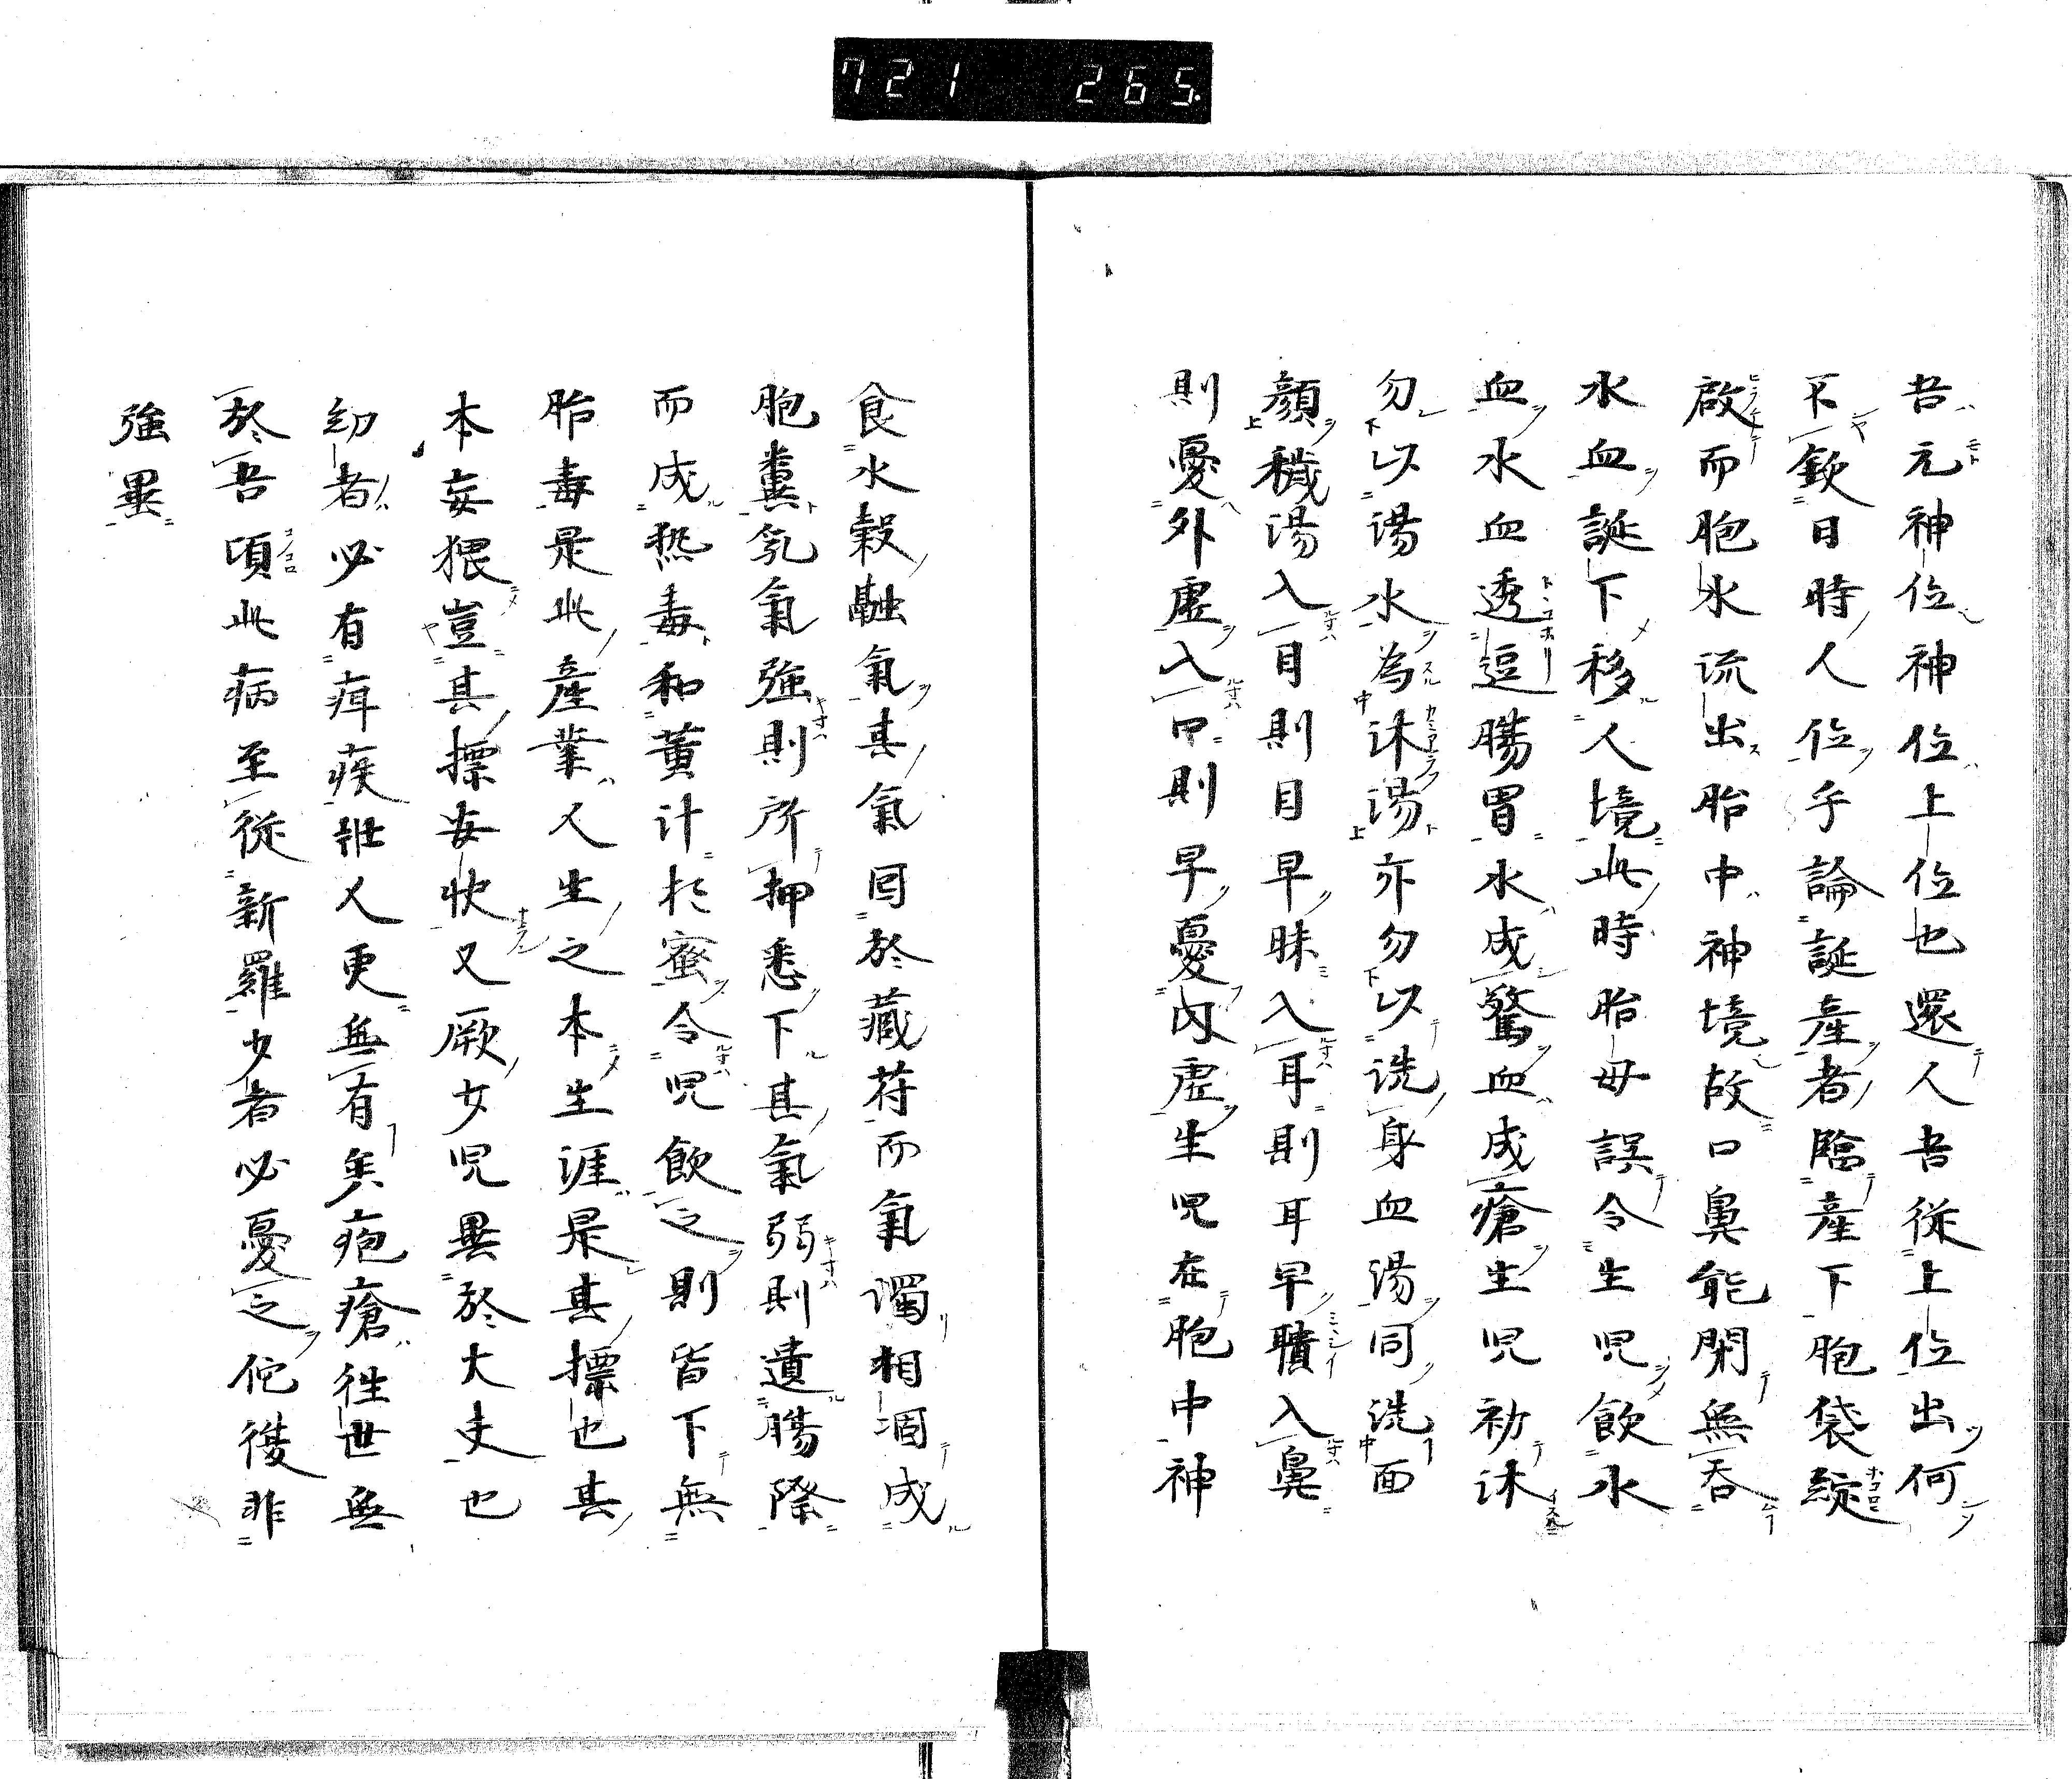 721 265
吾元神位神位上位也還人吾從上位出何
不欽日時人位乎論誕産者臨産下胞袋綻
啟而胞水流出胎中神境故口鼻能閉無吞
水血誕下移人境此時胎母誤令生児飲水
血水血透逗腸胃水成驚血成瘡生児初沐
勿以湯水為沐湯亦勿以洗身血湯同洗面
顔穢湯入目則目早昧入耳則耳早聵入鼻
則憂外虚入口則早憂内虚生児在胞中神
食水穀融氣其氣回於蔵府而氣濁相涸成
胞糞氣氣強則所押悉下其氣弱則遺腸際
而成熱毒和黄汁於蜜令児飲之則皆下無
胎毒是此産業人生之本生涯是其摽也其
本妄猥豈其摽安快又厥女児異於大夫也
幼者必有疛疾壯人更無有矣疱瘡徃世無
於吾頃此病至從新羅少者必憂之佗後非
強異